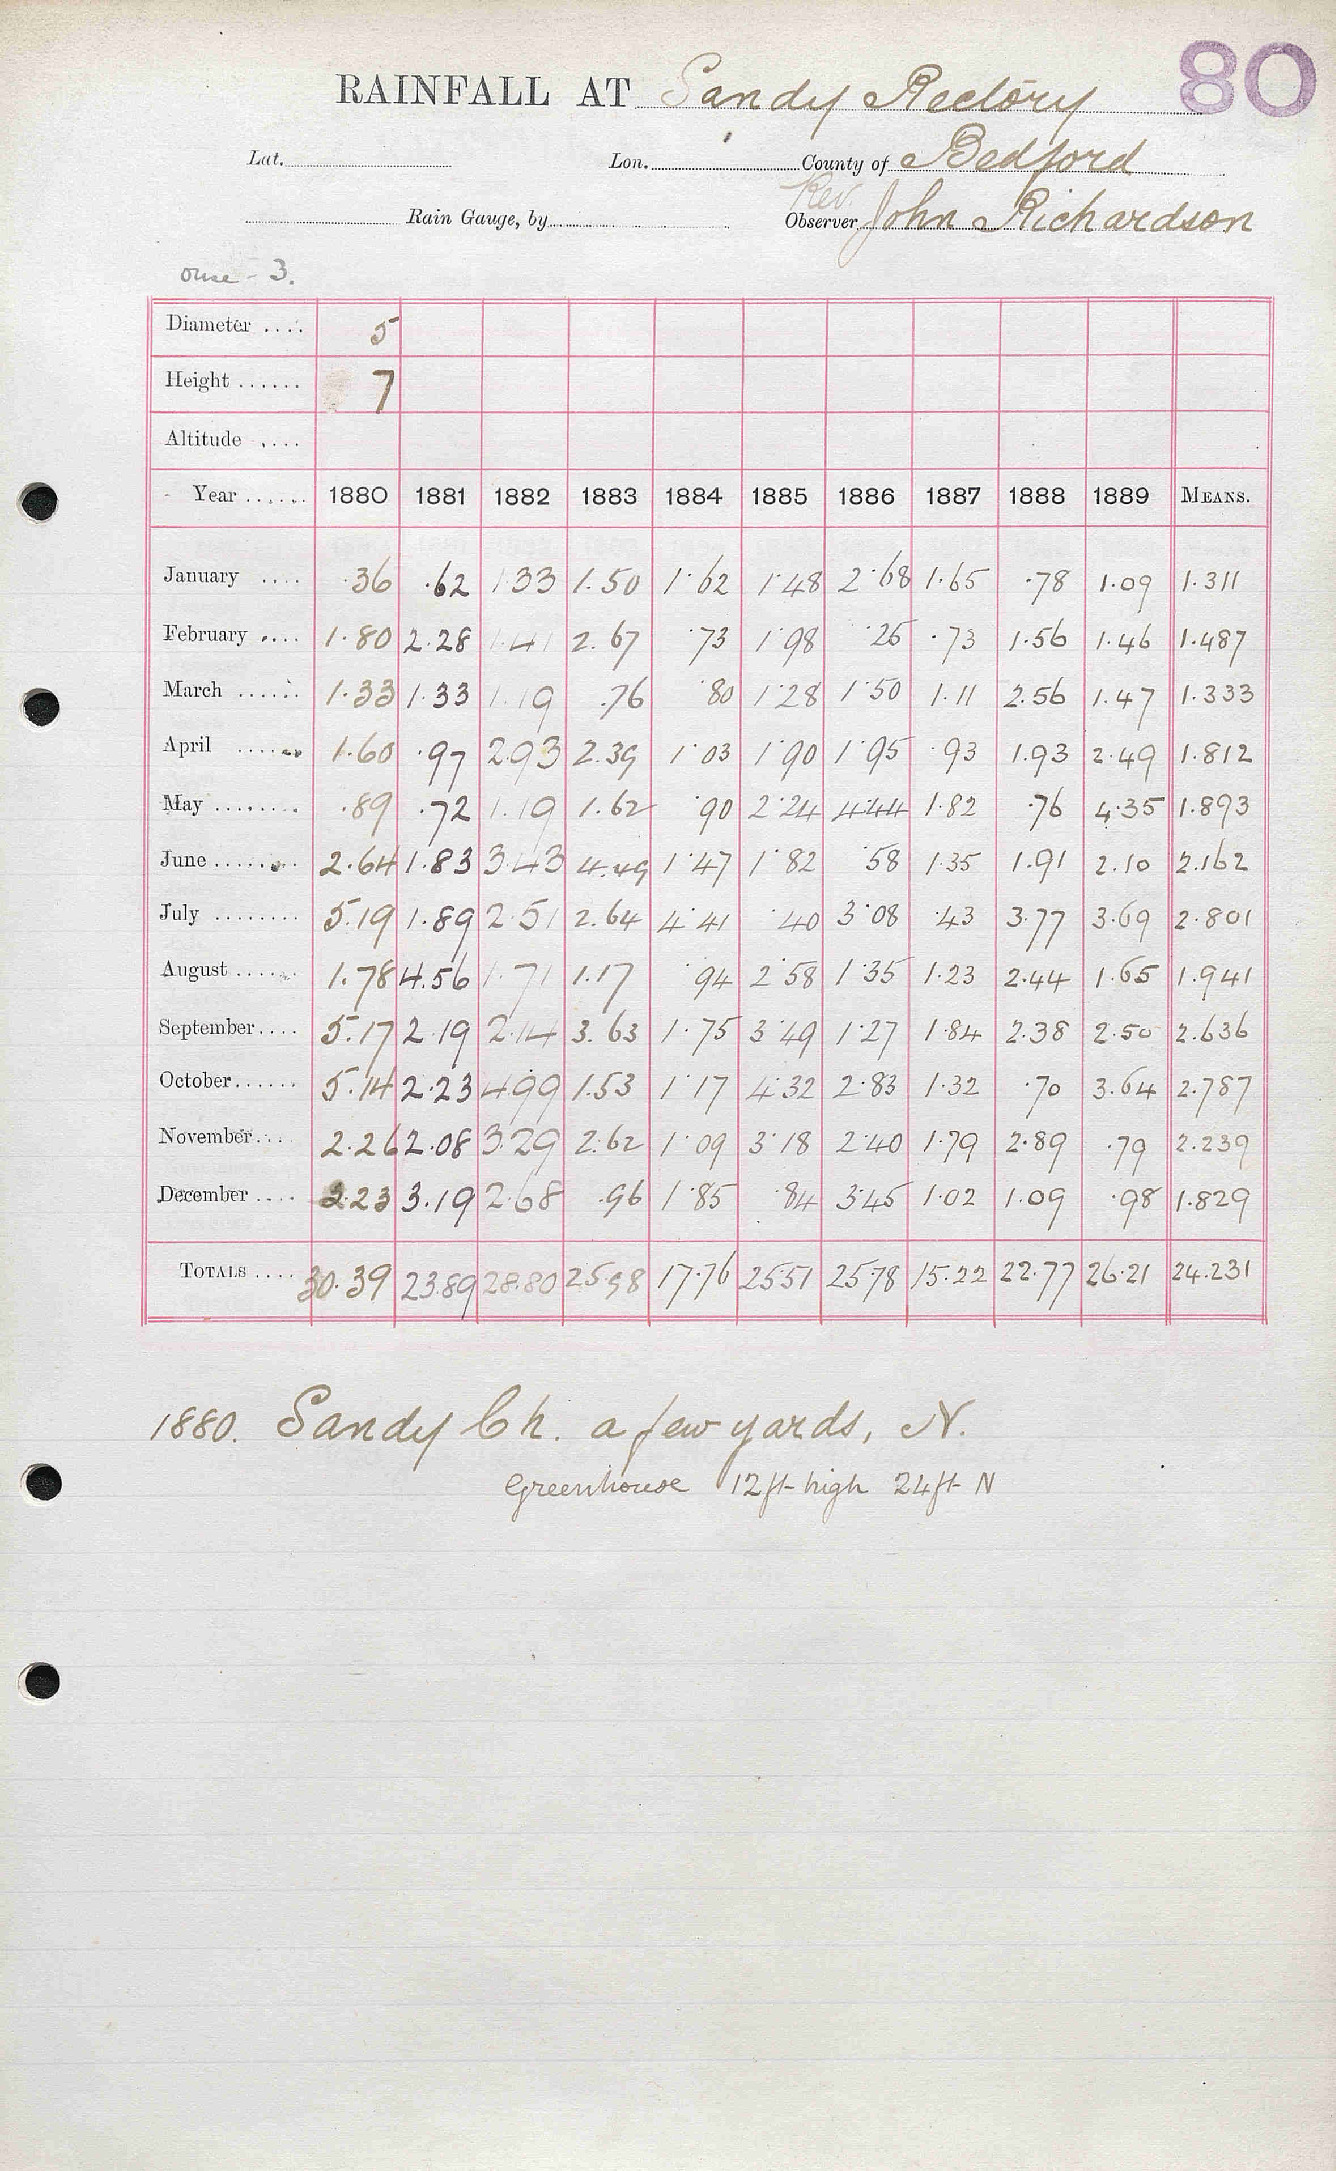 80
RAINFALL AT Sandy Rectory
Lat. Lon. County of Bedford
Rev.
Rain Gauge, by Observer John Richardson
Ouse - 3.
Diameter .... 5
Height ...... 7
Altitude ....
Year ...... 1880 1881 1882 1883 1884 1885 1886 1887 1888 1889 MEANS.
January .... .36 .62 1.33 1.50 1.62 1.48 2.68 1.65 .78 1.09 1.311
February .... 1.80 2.28 1.41 2.67 .73 1.98 .25 .73 1.56 1.46 1.487
March ...... 1.33 1.33 1.19 .76 .80 1.28 1.50 1.11 2.56 1.47 1.333
April ...... 1.60 .97 2.93 2.39 1.03 1.90 1.95 .93 1.93 2.49 1.812
May ........ .89 .72 1.19 1.62 .90 2.24 4.44 1.82 .76 4.35 1.893
June ....... 2.64 1.83 3.43 4.49 1.47 1.82 .58 1.35 1.91 2.10 2.162
July ........ 5.19 1.89 2.51 2.64 4.41 .40 3.08 .43 3.77 3.69 2.801
August ...... 1.78 4.56 1.71 1.17 .94 2.58 1.35 1.23 2.44 1.65 1.941
September.... 5.17 2.19 2.14 3.63 1.75 3.49 1.27 1.84 2.38 2.50 2.636
October...... 5.14 2.23 4.99 1.53 1.17 4.32 2.83 1.32 .70 3.64 2.787
November.... 2.26 2.08 3.29 2.62 1.09 3.18 2.40 1.79 2.89 .79 2.239
December .... 2.23 3.19 2.68 .96 1.85 .84 3.45 1.02 1.09 .98 1.829
TOTALS .... 30.39 23.89 28.80 25.98 17.76 25.51 25.78 15.22 22.77 26.21 24.231
1880. Sandy Ch. a few yards, N.
Greenhouse 12ft high 24ft N